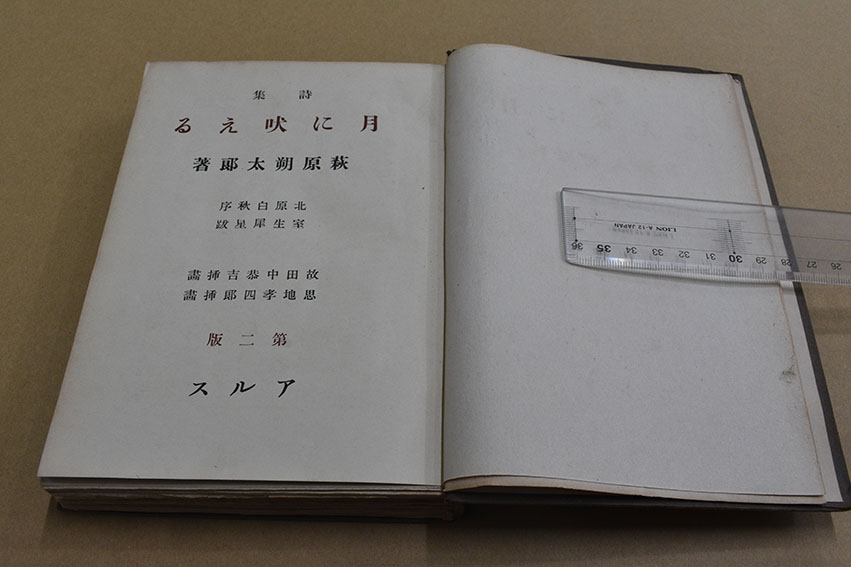 詩集
月に吠える
萩原朔太郎著
北原白秋序
室生犀星跋
故田中恭吉挿畫
恩地孝四郎挿畫
第二版
アルス
LION A-12 JAPAN
36 35 34 33 32 31 30 29 28 27 26